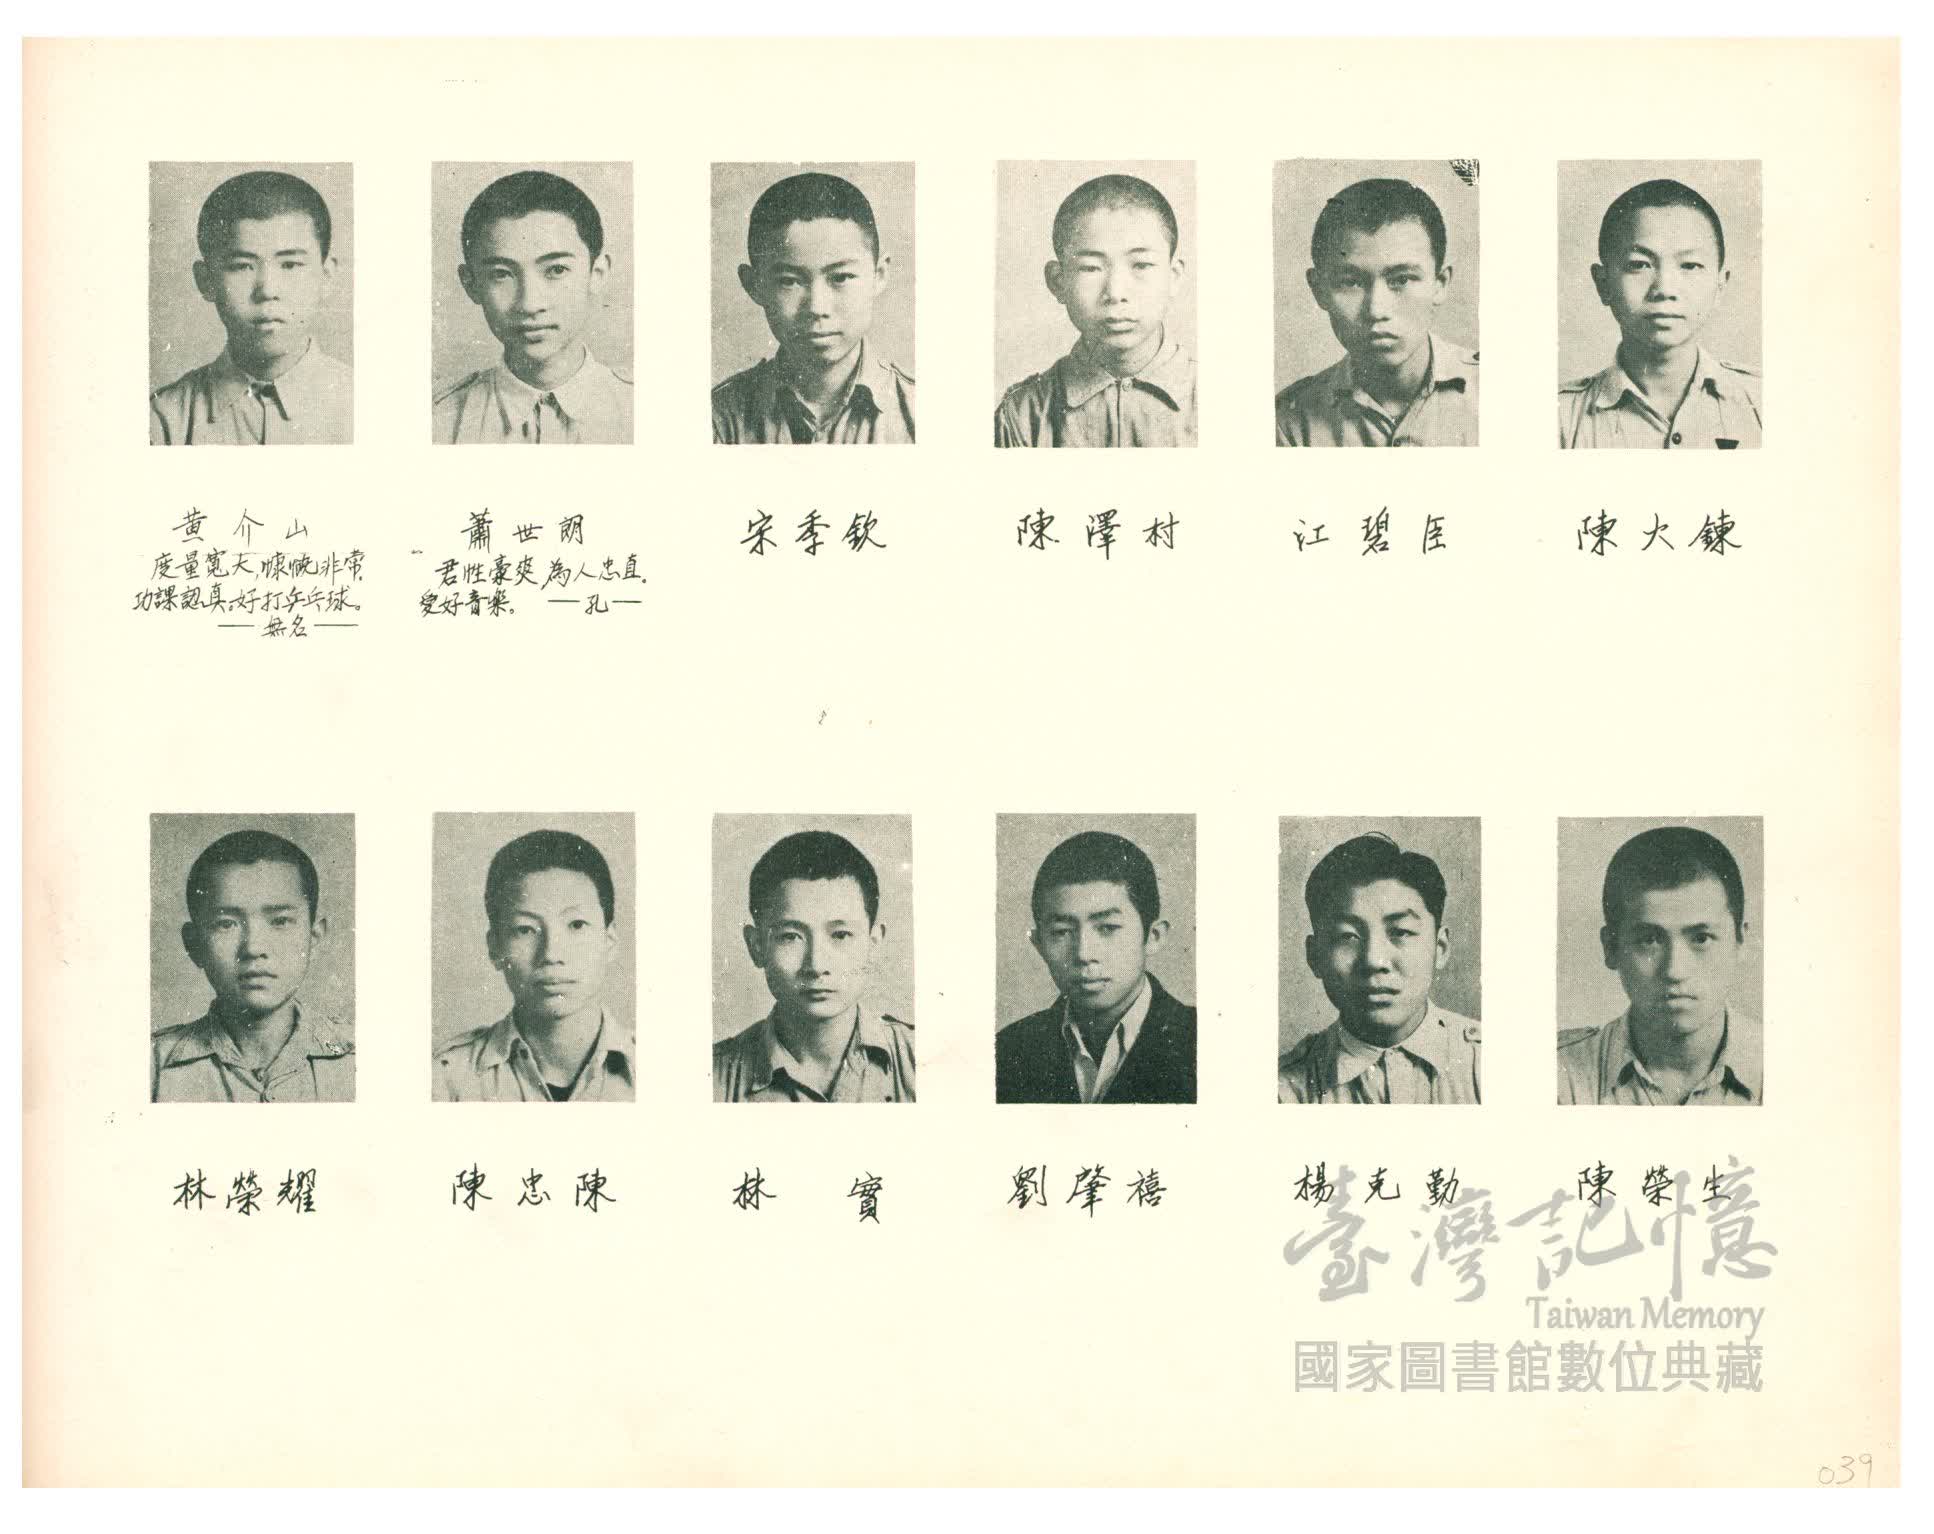 黄介山
度量寬大,慷慨非常,
功課認真。好打乒乓球。
—無名—
蕭世朗
君性豪爽,為人忠直。
愛好音樂。 —孔—
宋季欽
陳澤村
江碧臣
陳火鍊
林榮耀
陳忠陳
林實
劉肇禧
楊克勤
陳榮生
臺灣記憶
Taiwan Memory
國家圖書館數位典藏
039